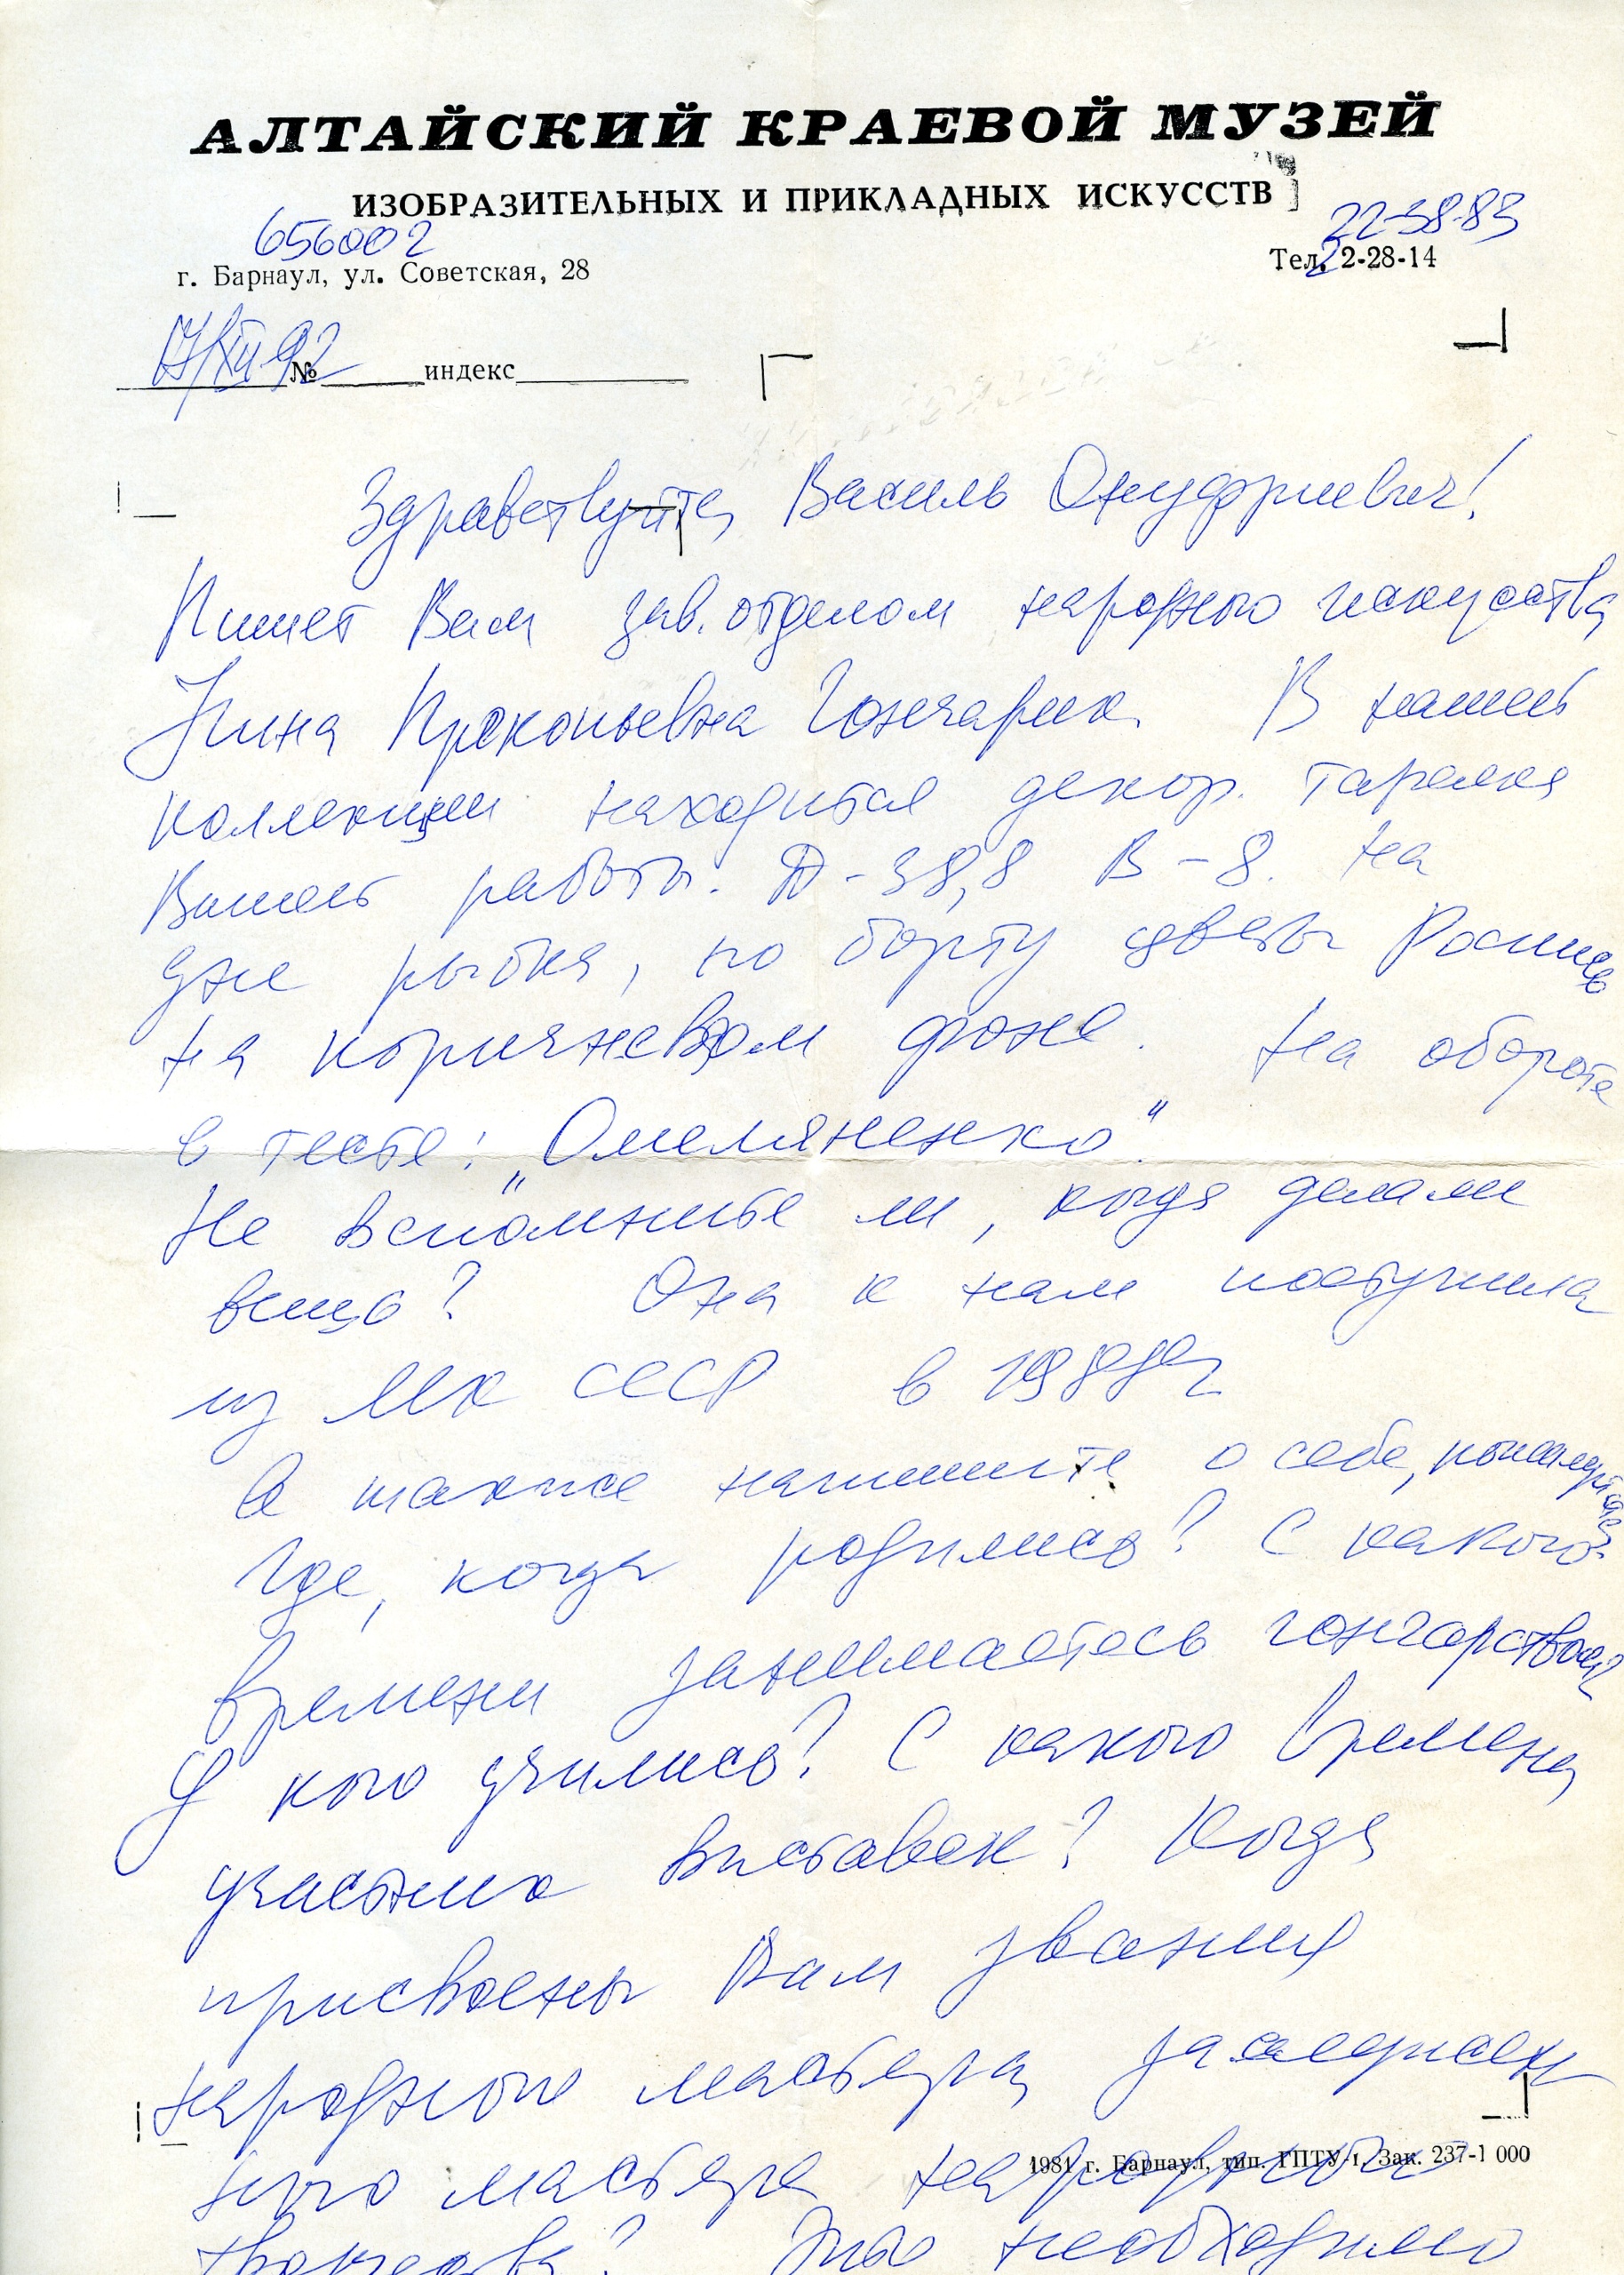 АЛТАЙСКИЙ КРАЕВОЙ МУЗЕЙ
ИЗОБРАЗИТЕЛЬНЫХ И ПРИКЛАДНЫХ ИСКУССТВ
656002 22-38-83
г. Барнаул, ул. Советская, 28 Тел. 2-28-14
7/XII-92 № индекс
Здравствуйте, Василь Онуфриевич!
Пишет Вам зав. отделом народного искусства
Нина Прокопьевна Гончарик. В нашей
коллекции находится декор. тарелка
Вашей работы. Д-38,8 В-8. На
дне рыбка, по борту цветы Роспись
на коричневом фоне. На обороте
в тесте: „Омеляненко"
Не вспомните ли, когда делали
вещь? Она к нам поступила
из МК СССР в 1988г
А также напишите о себе, пожалуйста,
Где, когда родились? С какого
времени занимаетесь гончарством?
У кого учились? С какого времени
участник выставок? Когда
присвоены Вам звания
народного мастера, заслужен
ного мастера народного
творчества? Это необходимо
1981 г. Барнаул, тип. ГПТУ-1, Зак. 237-1 000